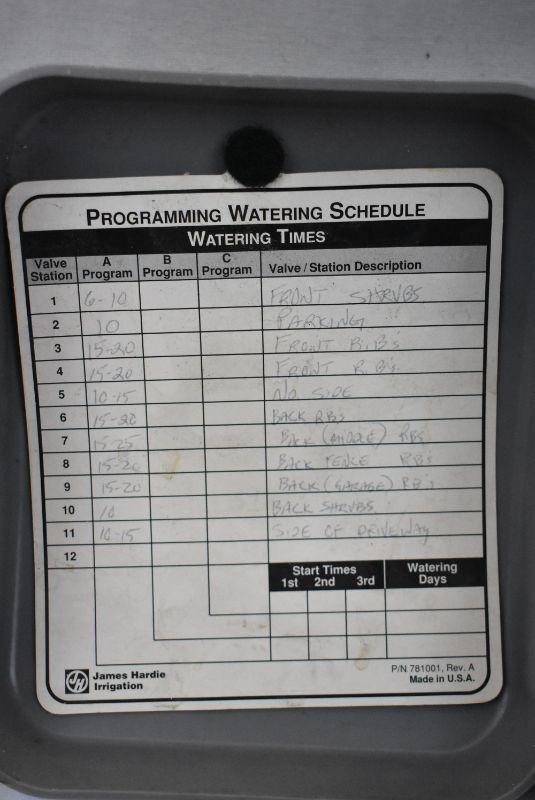 PROGRAMMING WATERING SCHEDULE
WATERING TIMES
Valve Station A Program B Program C Program Valve / Station Description
1 6-10 FRONT SHRUBS
2 10 PARKING
3 15-20 FRONT R.B's
4 15-20 FRONT R.B's
5 10-15 NO SIDE
6 15-20 BACK RB's
7 15-25 BACK (MIDDLE) RBs
8 15-20 BACK FENCE RB's
9 15-20 BACK (GARAGE) RB's
10 10 BACK SHRUBS
11 10-15 SIDE OF DRIVEWAY
12
Start Times Watering Days
1st 2nd 3rd
JH James Hardie Irrigation
P/N 781001, Rev. A
Made in U.S.A.